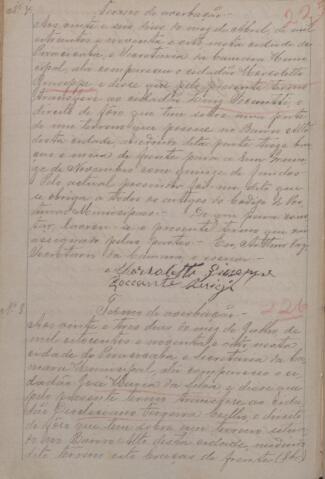 Nº 7. Termo de averbação. 225
Aos vinte e seis dias do mez de Abril, de mil
oitocentos e noventa e oito nesta cidade de
Piracicaba, e Secretaria da Camara Muni-
cipal, ahi compareceu o cidadão Morsoletto
Giuseppe e disse que pelo presente termo
transfere ao cidadão Luiz Zoccante, o
direito de fôro que tem sobre uma parte
de um terreno que possue no Bairro Alto
desta cidade, medindo dita parte treze bra-
ças e meia de frente para a rua Quinze
de Novembro com quinze de fundos.
Pelo actual possuidor foi-me dito que
se obriga a todos os artigos do Codigo de Pos-
turas Municipaes. E para cons-
tar, lavrou-se o presente termo que vai
assignado pelas partes. Eu,
Secretario da Camara o escrevi
Morsoletto Giuseppe
Zoccante Luigi
Nº 8. Termo de averbação. 226
Aos vinte e dias do mez de Junho de
mil oitocentos e noventa e oito nesta
cidade de Piracicaba e Secretaria da Ca-
mara Municipal, ahi compareceu o ci-
dadão José da Silva e disse que
pelo presente termo transfere ao cida-
dão o direito
de fôro que tem sobre um terreno situa-
do no Bairro Alto desta cidade, medindo
dito terreno oito braças de frente (8 b.)